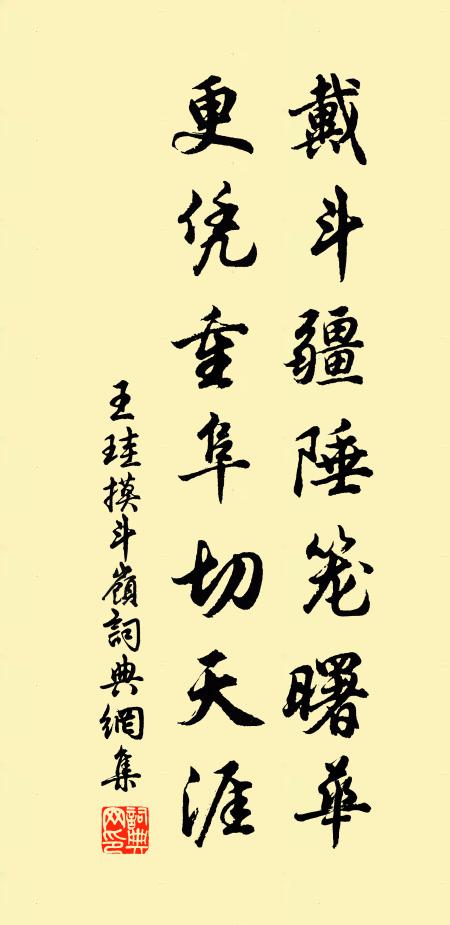 戴斗疆陲笼曙華
更凭重阜切天涯
王珪摸斗嶺詞典網集
詞典网印